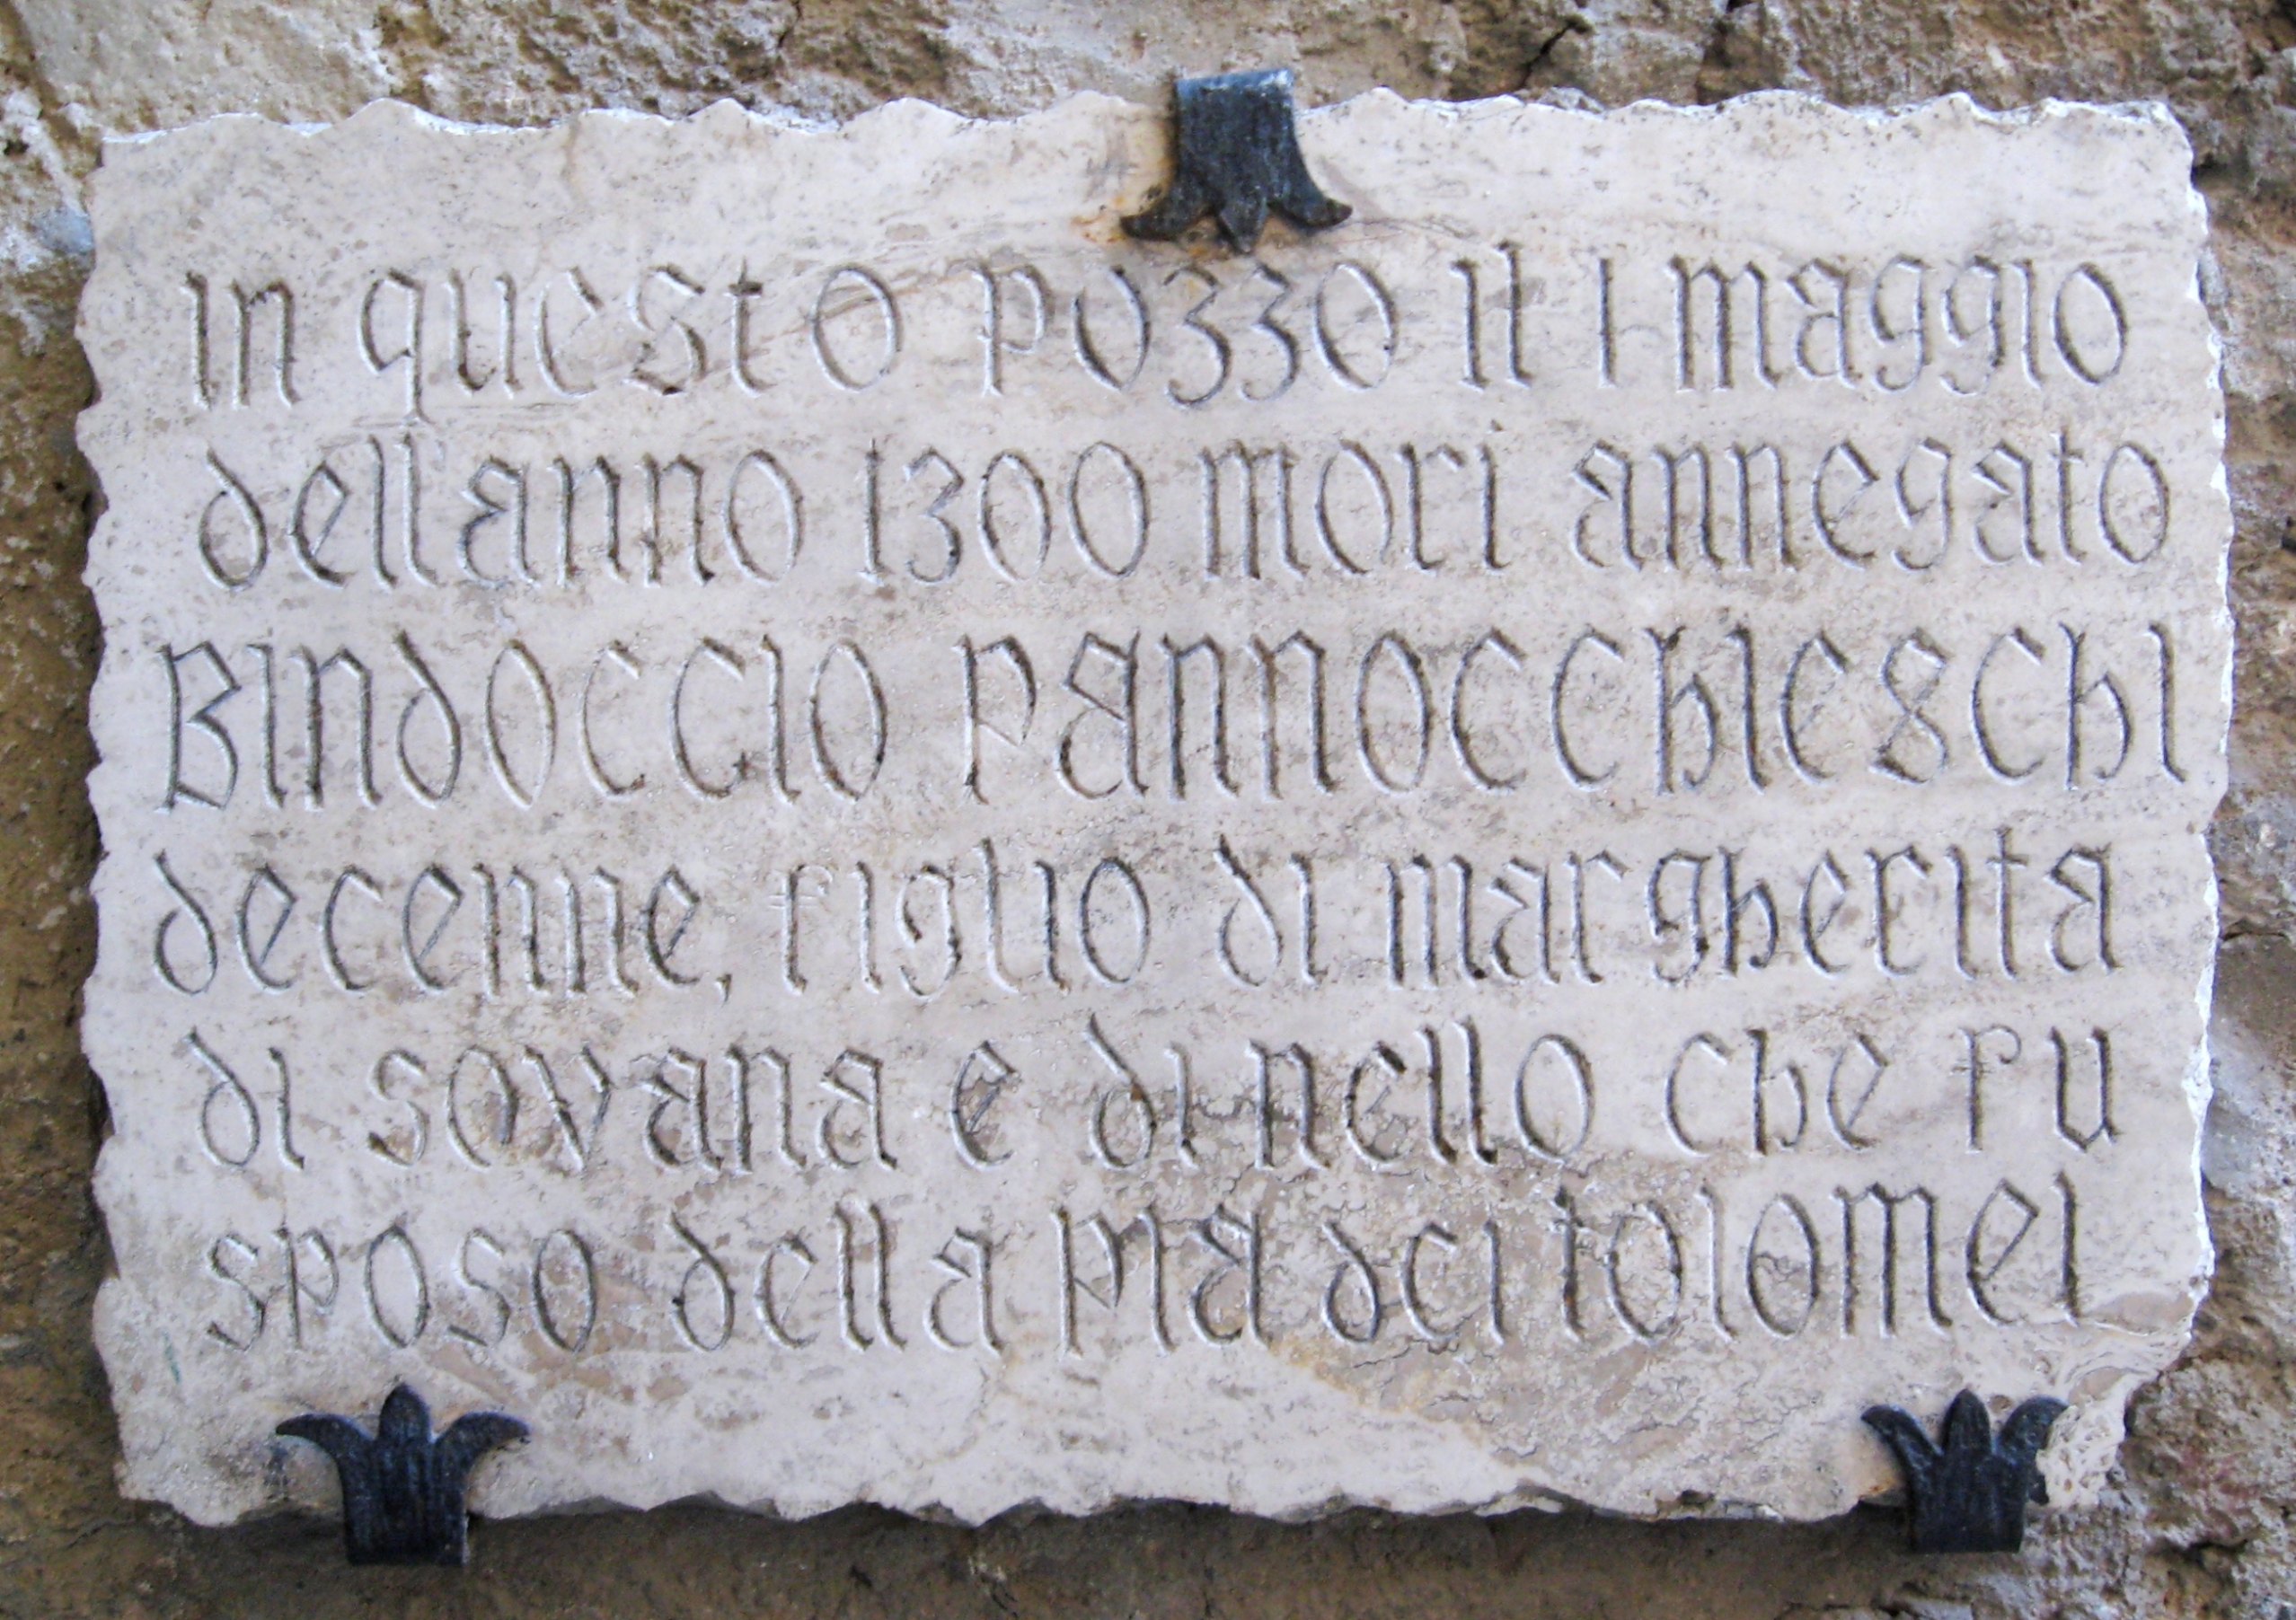 in questo pozzo il 1 maggio
dell'anno 1300 morì annegato
Bindoccio Pannocchieschi
decenne, figlio di margherita
di sovana e di nello che fu
sposo della pia dei tolomei